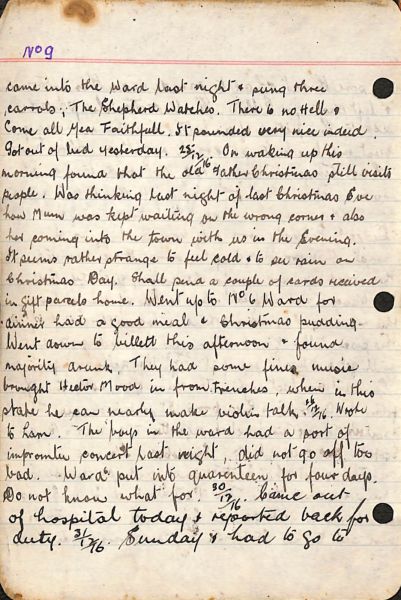 No 9
came into the Ward last night & sung three
carrols; The Shepherd Watches. There is no Hell &
Come all Yea Faithfull. It sounded very nice indeed
Got out of bed yesterday. 25/12/16. On waking up this
morning found that the old Father Christmas still visits
people. Was thinking last night of last Christmas Eve
how Mum was kept waiting on the wrong corner & also
her coming into the town with us in the Evening.
It seems rather strange to feel cold & to see rain on
Christmas Day. Shall send a couple of cards received
in gift parcels home. Went up to No 6 Ward for
dinner had a good meal & Christmas pudding.
Went down to billett this afternoon & found
majority drunk. They had some fine music
brought Hector Mood in from trenches, when in this
state he can nearly make violin talk. 26/12/16. Wrote
to Ham. The boys in the ward had a sort of
impromtu concert last night, did not go off too
bad. Ward put into quarenteen for four days.
Do not know what for. 30/12/16. Came out
of hospital today & reported back for
duty. 31/12/16. Sunday & had to go to